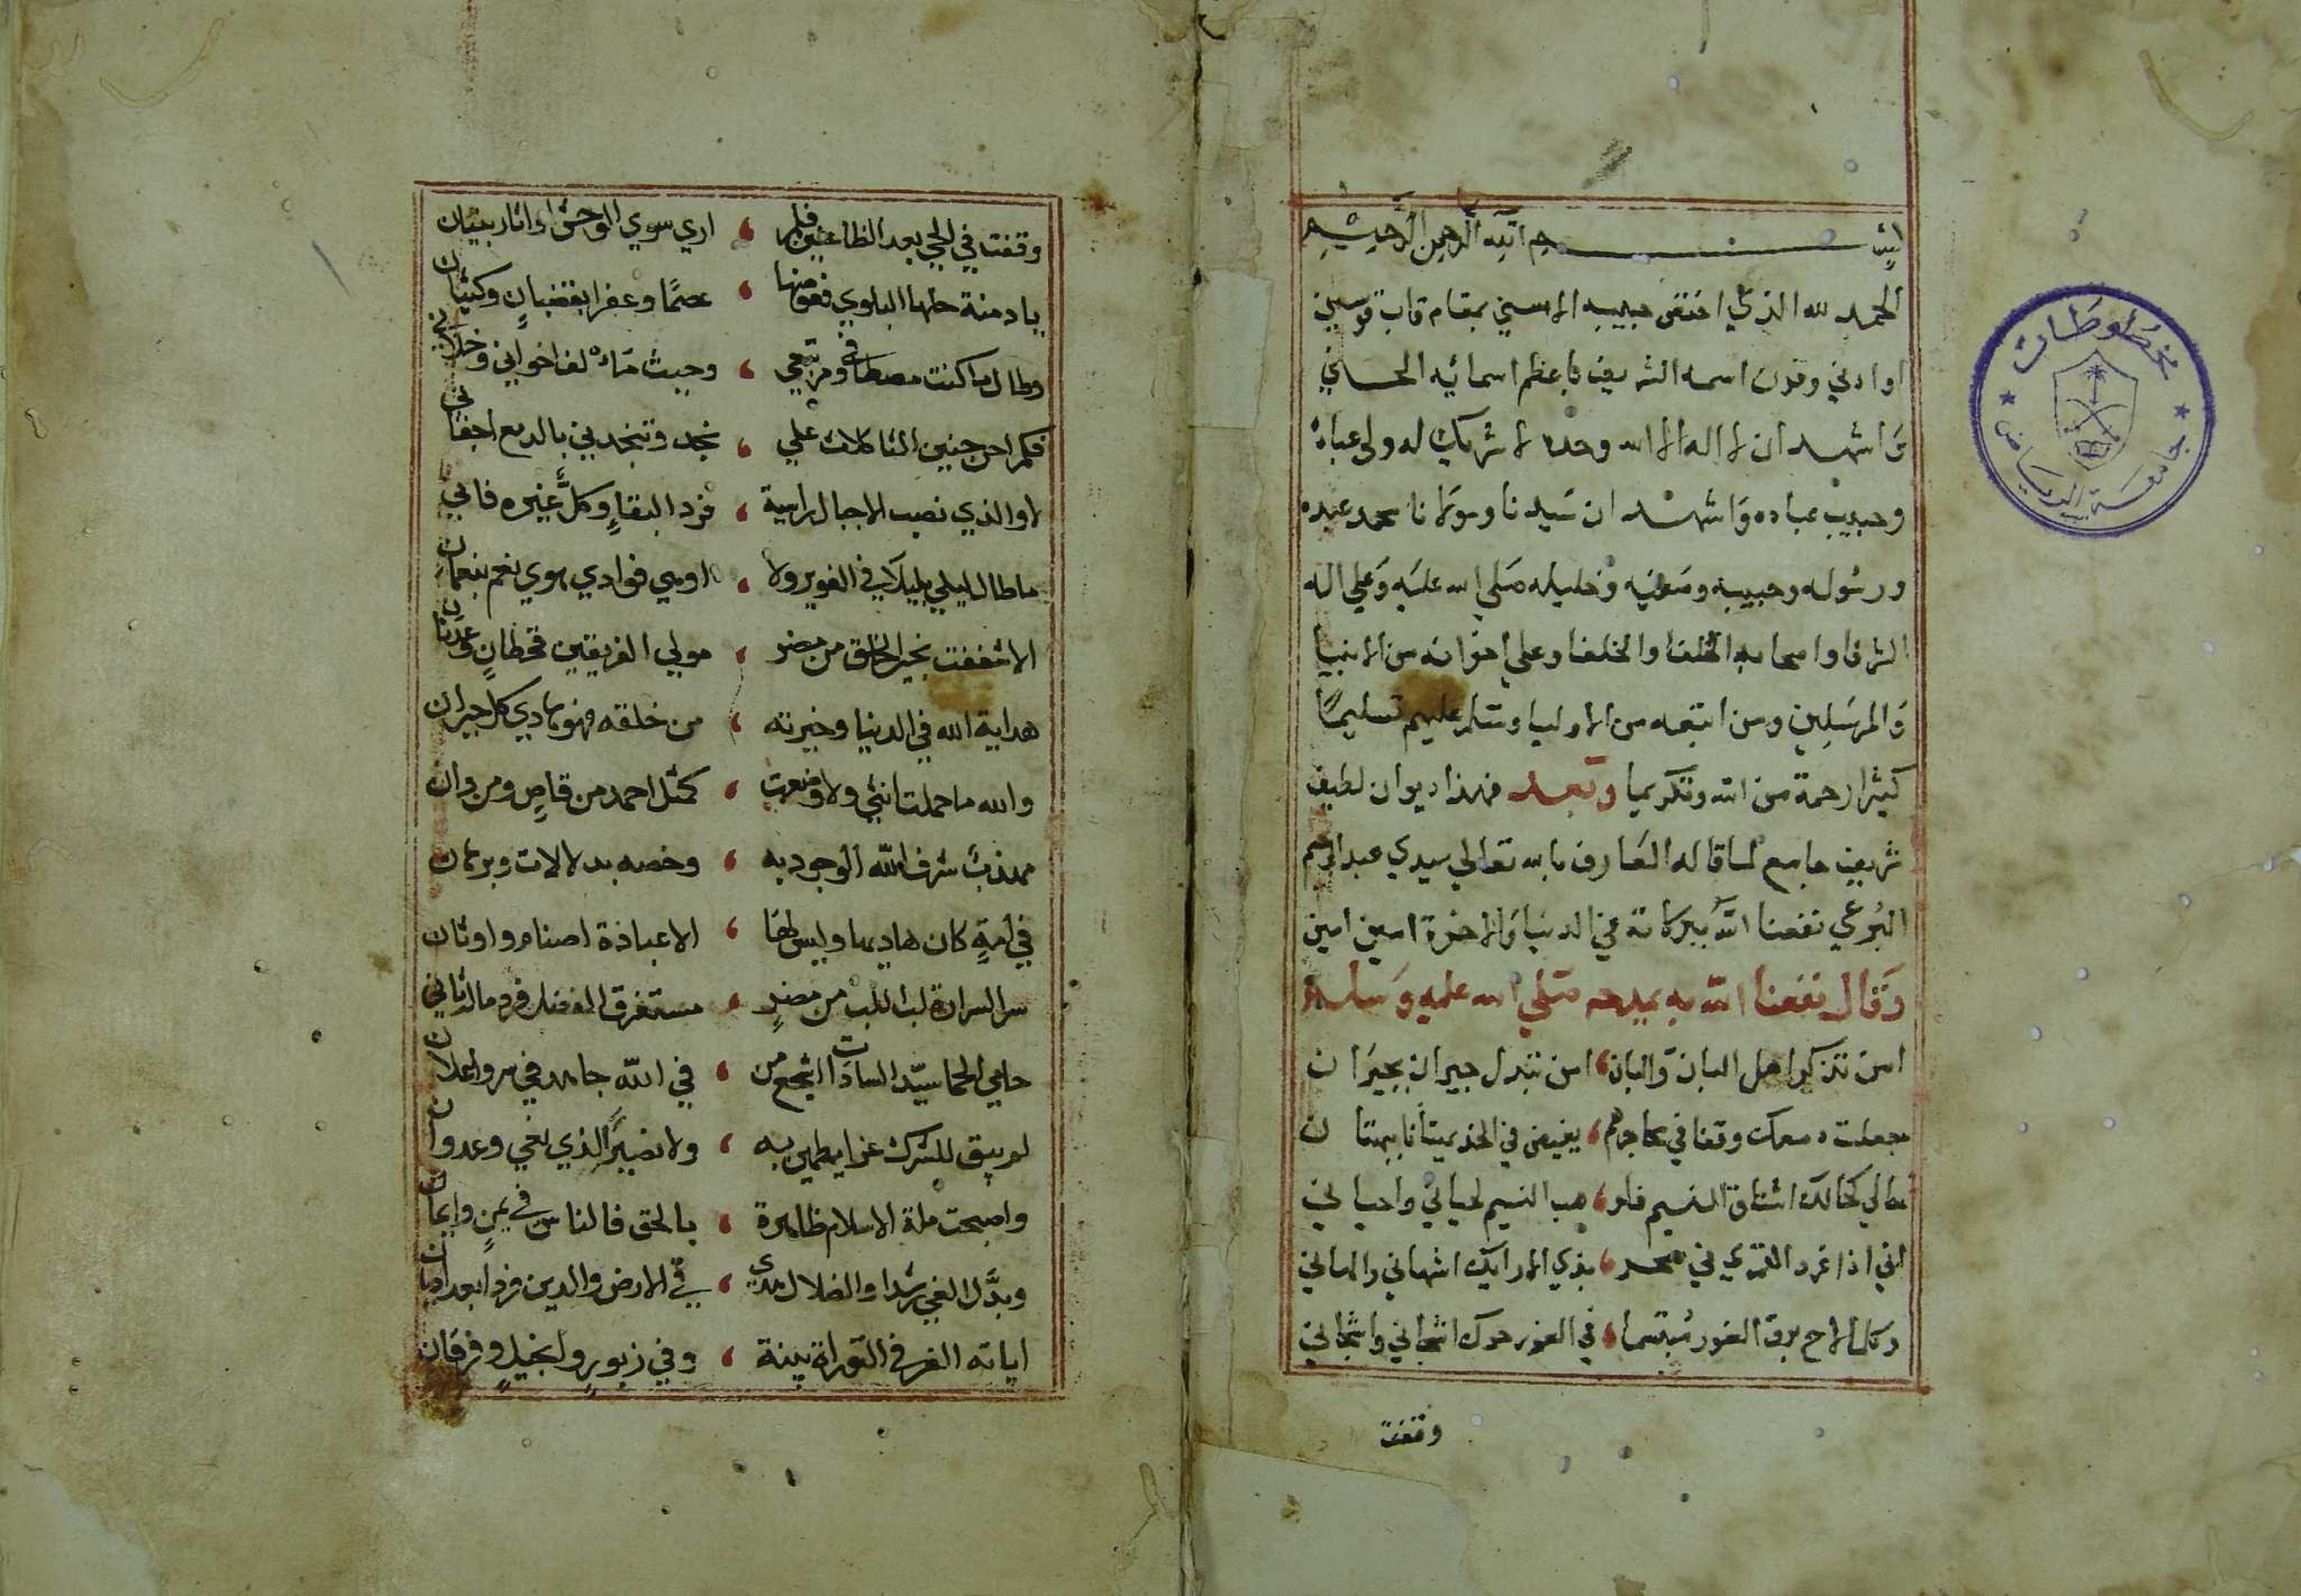 بسم الله الرحمن الرحيم
الحمد لله الذي اختص حبيبه الاسني بمقام قاب قوسين
او ادني وقرن اسمه الشريف باعظم اسمائه الحسني
وَاشهد ان لا اله الا الله وحده لا شريك له ولي عباده
وحبيب عباده وَاشهد ان سَيدنا ومَولانا محمد عبده
ورسُوله وحبيبه وصَفيه وَخليله صَلي الله عليَه وَعلي اله
الشرفا واصحابه الحلفا والخلفا وعلي اخوانه من الانبيا
وَالمرسَلِين ومن اتبعه من الاوليا وسَلم عليهم تسليمًا
كثيرا رحمة من الله وتكريما وبَعد فهذا ديوان لطيف
شريف جامع لما قاله العَارف بالله تعالي سيدي عبد الرحيم
البُرعي نفعنا الله ببركاته في الدنيَا وَالاخرة امين امين
وَقال نفعنا الله به بمدحه صَلي الله عليه وَسلم
امن تذكر اهل البان وَالبان ، امن تبدل جيران بجيَران
جعلت دمعك وقفا في محاجرهم ، يفيض في الخد
مالي كخالك اشتاق النسيم فلو ، هب النسيم لحياني واحياني
اني اذا غرد القمري في سحر ، بذي الاراك اشهاني والهاني
وكل ما لاح برق الغور مُبتسما ، في الغور حرك اشجاني واشجاني
وقفت
وقفت في الحي بعد الظاعنين فلم ، اري سوي الوحش او اثار بنيان
يا دمنة حلها البلوي فعوضها ، عصمًا وعفرا بقضبانٍ وكثبان
وطال ما كنت مصطافي ومرتبعي ، وحيث مَالف اخواني وخلاني
فكم احن حنين الثاكلات علي ، نجد وتنجدني بالدمع اجفاني
لا والذي نصب الاجبال راسية ، فرد البقاءِ وكلٌ غيره فاني
ما طال ليلي بليلاي في الغوير ولا ، اوهي فوادي هوي نعم بنعمان
الا شغفت بخير الخلق من مضر ، مولي الفريقين قحطانٍ وعدنان
هداية الله في الدنيا وخيرته ، من خلقه فهو هادي كل حيران
والله ما حملت انثي ولا وضعت ، كمثل احمد من قاصٍ ومن دان
مهذبٌ شرف الله الوجود به ، وخصه بدلالات وبرهان
في امةٍ كان هاديها وليس لها ، الا عبادة اصنام واوثان
سر السرارة لب اللب من مضرٍ ، مستغرق الفضل فرد ماله ثاني
حامي الحما سيّد السادات اشجع من ، في الله جاهد في سر واعلان
لم يبق للشرك عزا يطمين به ، ولا نصيرًا لذي بغي وعدوان
واصبحت ملة الاسلام ظاهرة ، بالحق فالناس في يمنٍ وايمان
وبدَّل الغي رشدا والضلال هدي ، في الارض والدين فردا بعد اديان
اياته الغر في التوراة بينة ، وفي زبورٍ وانجيلٍ وفرقان
مخطوطات
جامعة الرياض